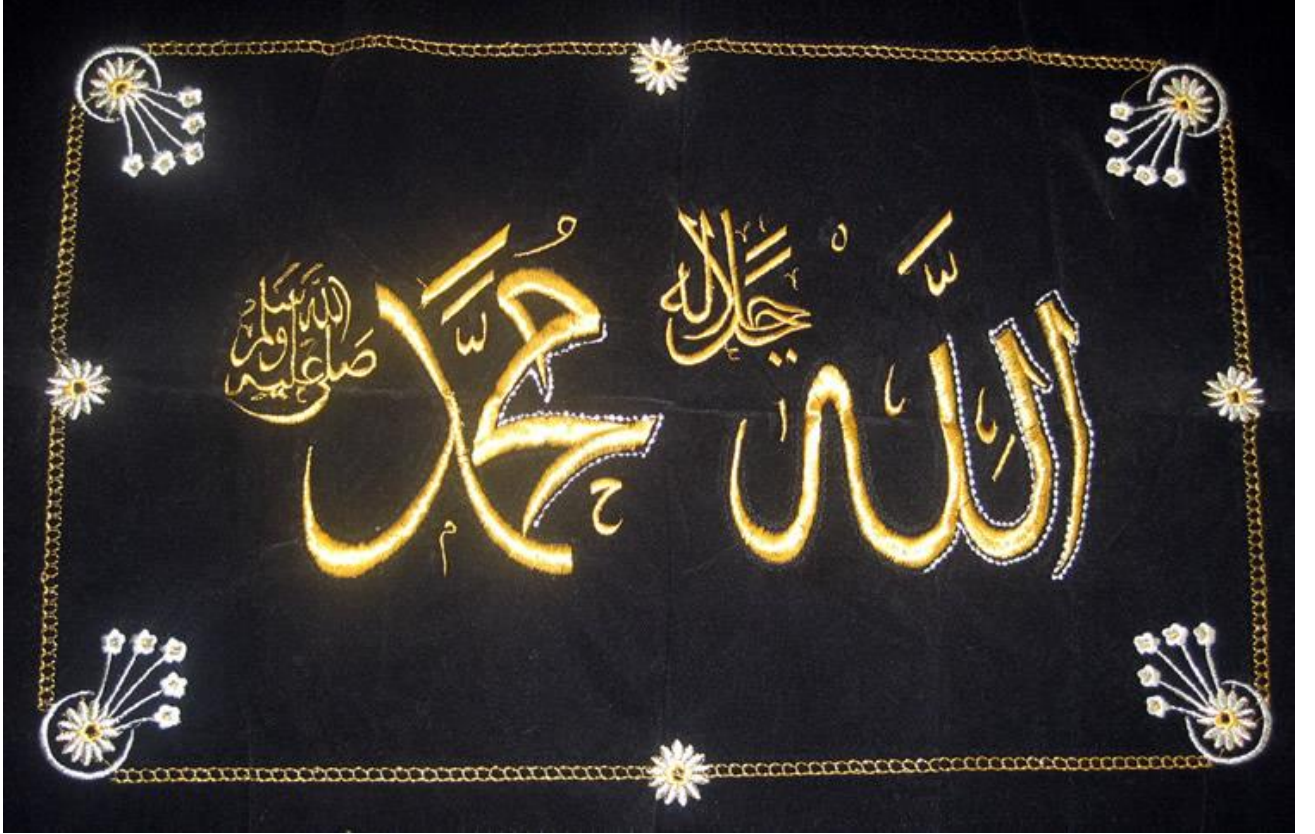 اللّٰه جل جلاله
محمّد صلى الله عليه وسلم